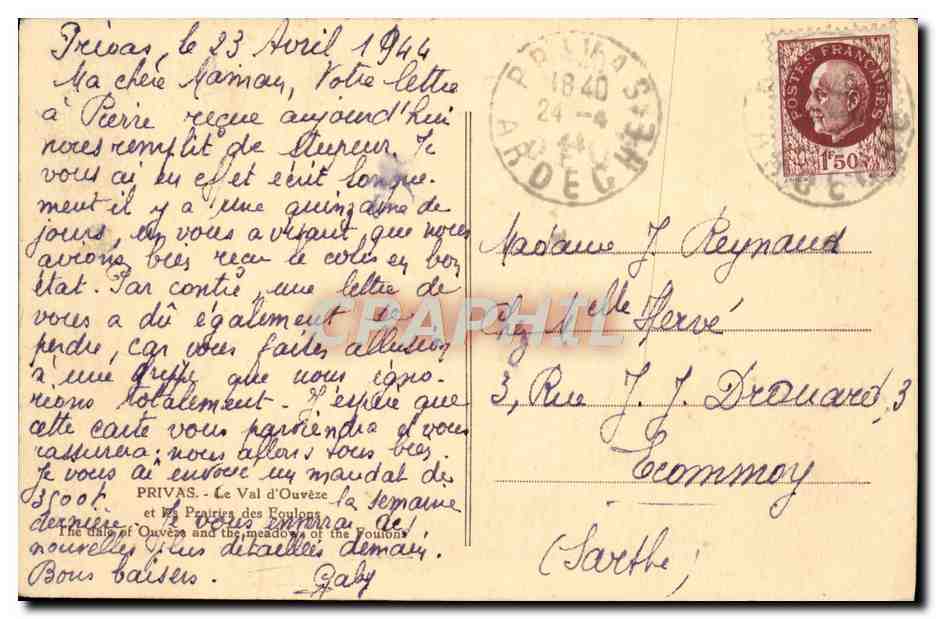 Privas, le 23 Avril 1944
Ma chère Maman, Votre lettre
à Pierre reçue aujourd'hui
nous remplit de stupeur. Je
vous ai en effet écrit longue-
ment il y a une quinzaine de
jours, en vous avisant que nous
avions bien reçu le colis en bon
état. Par contre, une lettre de
vous a dû également se
perdre, car vous faites allusion
à une grippe que nous igno-
rions totalement. J'espère que
cette carte vous parviendra et vous
rassurera; nous allons tous bien.
Je vous ai envoyé un mandat de
la semaine
dernière. Je vous enverrai des
nouvelles plus détaillées demain.
Bons baisers. Gaby
PRIVAS. - Le Val d'Ouvèze
et les Prairies des Foulons
The dale of Ouvèze and the meadows of the Foulons
PRIVAS
18 40
24 - 4
44
ARDECHE
POSTES FRANÇAISES
1F50
Madame J. Reynaud
chez Melle Hervé
3, Rue J. J. Drouard, 3
Ecommoy
(Sarthe)
CPAPHIL